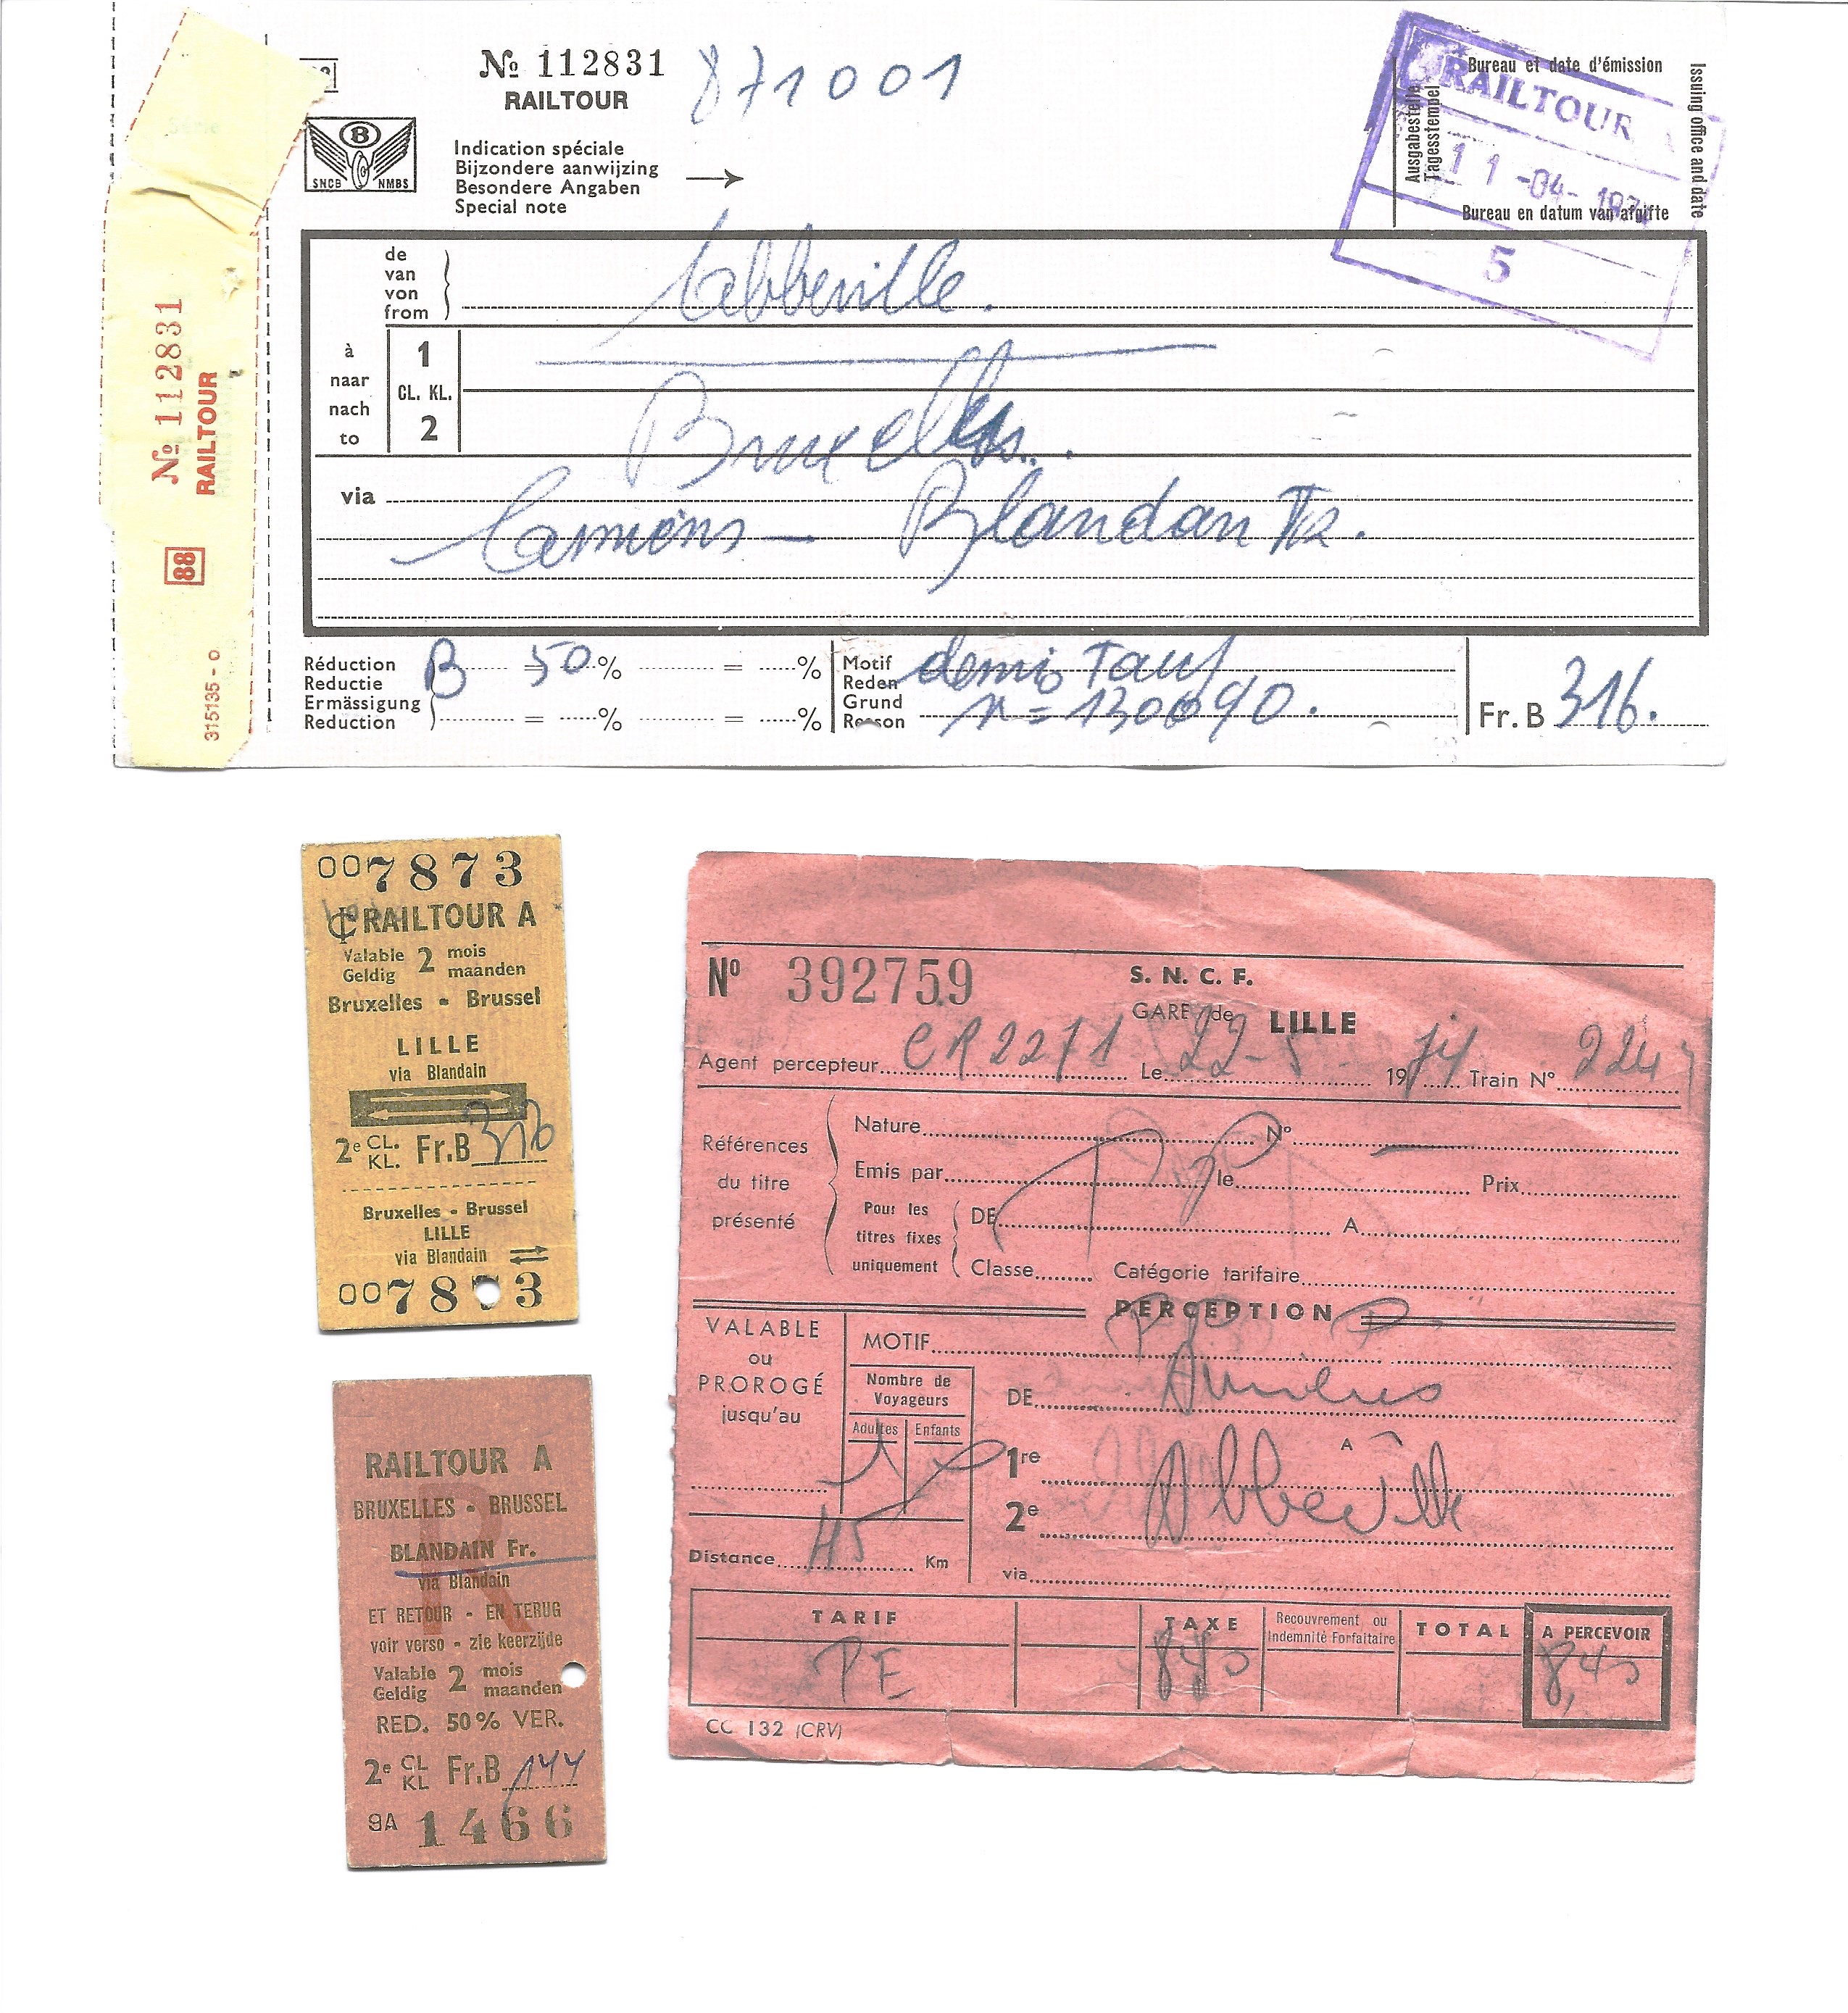 Nº 112831
RAILTOUR
871001
SNCB NMBS
Indication spéciale
Bijzondere aanwijzing
Besondere Angaben
Special note
Bureau et date d'émission
Ausgabestelle
Tagesstempel
Issuing office and date
Bureau en datum van afgifte
RAILTOUR
11-04-1974
5
de
van
von
from
abbeville.
à
naar
nach
to
1
CL. KL.
2
Bruxelles.
via
amiens - Blandain
Réduction
Reductie
Ermässigung
Reduction
B = 50 % = %
= % = %
Motif
Reden
Grund
Reason
demi Tarif
n = 130090.
Fr. B 316.
Série
Nº 112831
RAILTOUR
88
315135 - 0
007873
RAILTOUR A
Valable 2 mois
Geldig 2 maanden
Bruxelles - Brussel
LILLE
via Blandain
2e CL. KL. Fr.B 316
Bruxelles - Brussel
LILLE
via Blandain
007873
RAILTOUR A
R
BRUXELLES - BRUSSEL
BLANDAIN Fr.
via Blandain
ET RETOUR - EN TERUG
voir verso - zie keerzijde
Valable 2 mois
Geldig 2 maanden
RED. 50% VER.
2e CL KL Fr.B 144
9A 1466
Nº 392759
S. N. C. F.
GARE de LILLE
Agent percepteur CR 2271 Le 22-5 1974 Train Nº 224
Références
du titre
présenté
Nature Nº
Emis par le Prix
Pour les
titres fixes
uniquement
DE A
Classe Catégorie tarifaire
PERCEPTION
VALABLE
ou
PROROGÉ
jusqu'au
MOTIF
Nombre de
Voyageurs
Adultes Enfants
1
DE Amiens
A
1re
2e
Abbeville
Distance 45 Km
via
TARIF TAXE Recouvrement ou Indemnité Forfaitaire TOTAL A PERCEVOIR
PE 840 8,40
CC 132 (CRV)